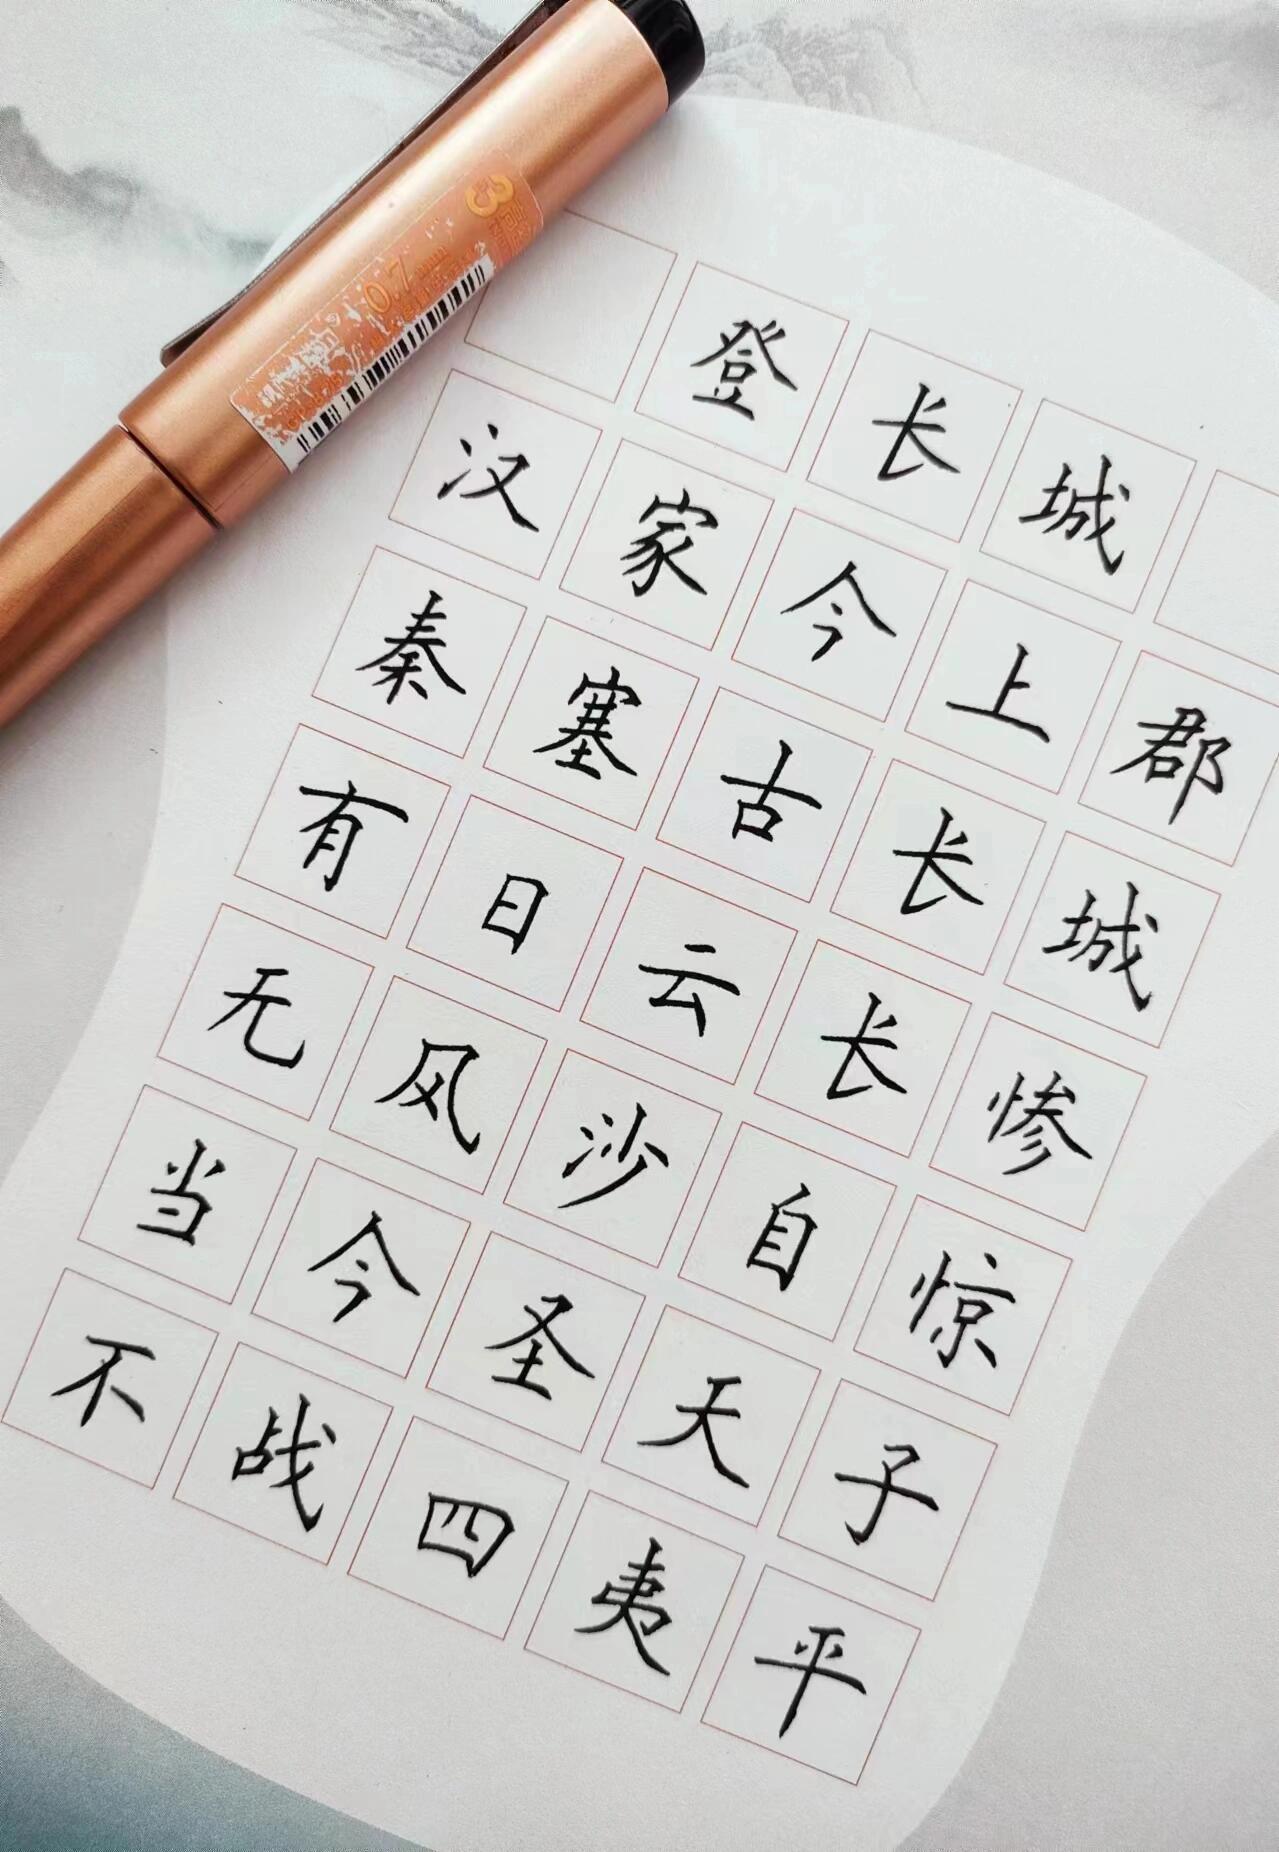 登长城
汉家今上郡
秦塞古长城
有日云长惨
无风沙自惊
当今圣天子
不战四夷平